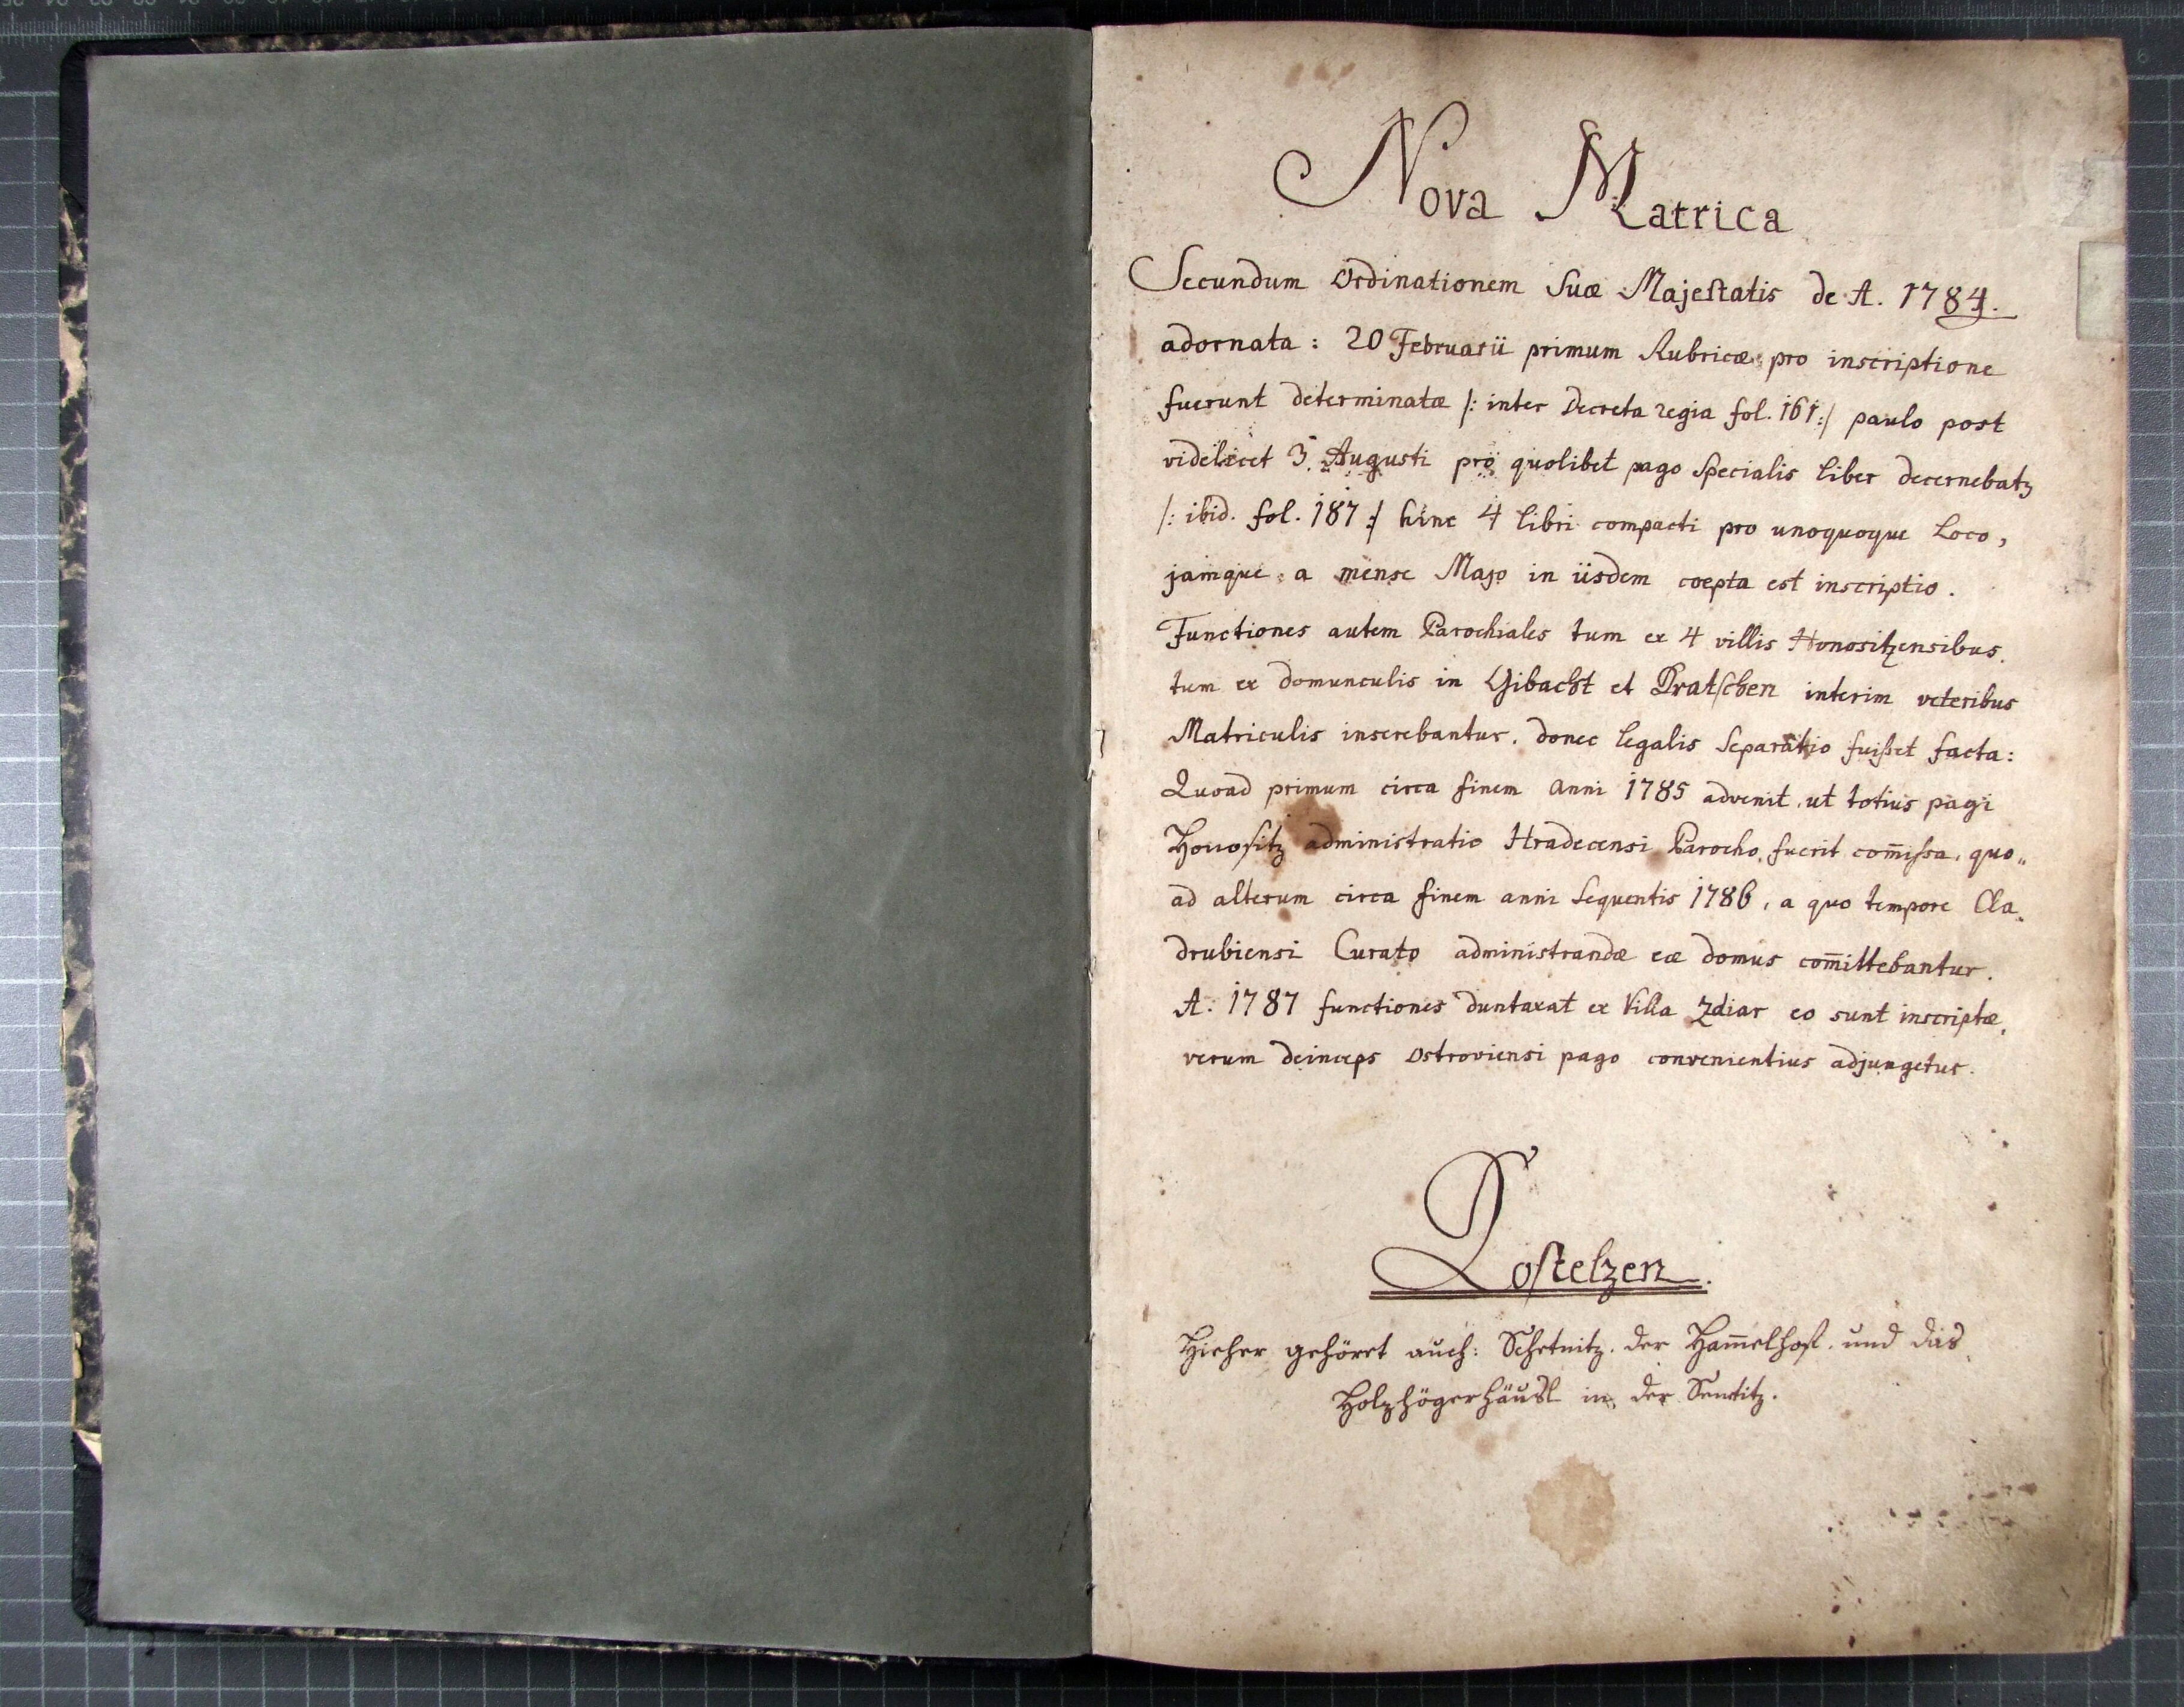 Nova Matrica
Secundum Ordinationem Suæ Majestatis de A. 1784.
adornata : 20 Februarii primum Rubricæ pro inscriptione
fuerunt determinatæ /: inter Decreta regia fol. 161 :/ paulo post
videlicet 3. Augusti pro quolibet pago specialis liber decernebatʒ
/: ibid. fol. 187 :/ hinc 4 libri compacti pro unoquoque Loco,
jamque a mense Majo in iisdem coepta est inscriptio.
Functiones autem Parochiales tum ex 4 villis Honositzensibus.
tum ex domunculis in Gibacht et Pratschen interim veteribus
Matriculis inserebantur, donec legalis separatio fuisset facta:
Quoad primum circa finem anni 1785 advenit, ut totius pagi
Honositz administratio Hradecensi Parocho fuerit com̄issa, quo„
ad alterum circa finem anni sequentis 1786, a quo tempore Cla„
drubiensi Curato administrandæ eæ domus com̄ittebantur.
A. 1787 functiones duntaxat ex Villa Zdiar eo sunt inscriptæ,
verum deinceps Ostroviensi pago convenientius adjungetur.
Lostelzen.
Hieher gehöret auch: Schetnitz, der Ham̄elhof, und das
Holzhögerhäusl in der Sentitz.